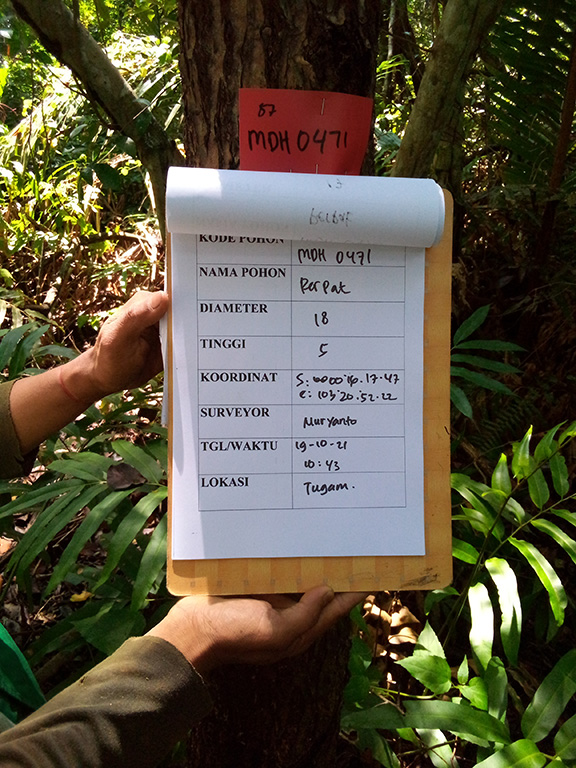 87
MDH 0471
KODE POHON MDH 0471
NAMA POHON Perpat
DIAMETER 18
TINGGI 5
KOORDINAT
E: 103.20.52.22
SURVEYOR Nuryanto
TGL/WAKTU 19-10-21
10:43
LOKASI Tugam.